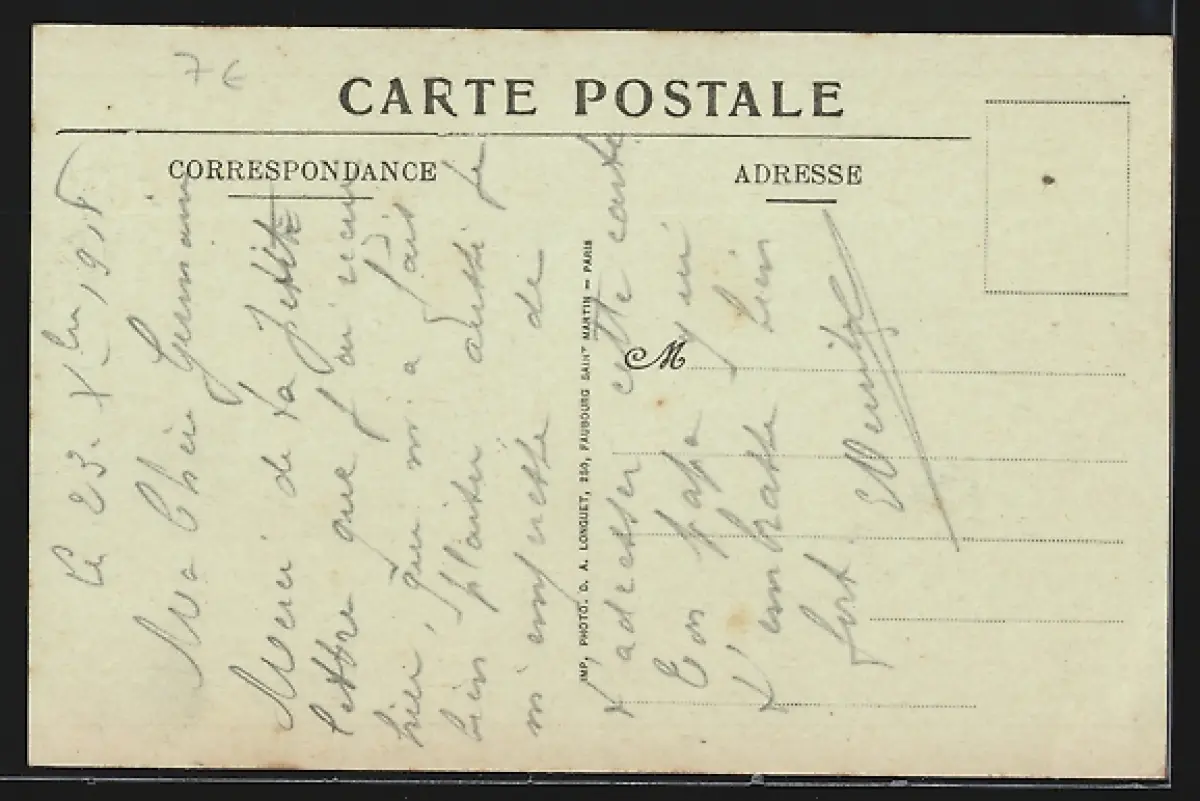 7 €
CARTE POSTALE
CORRESPONDANCE
ADRESSE
M
IMP. PHOTO. D. A. LONGUET, 250, FAUBOURG SAINT MARTIN — PARIS
Le 23. Xbre 191
Ma Chère Germaine
Merci de ta petite
lettre que j'ai reçu
hier, qui m'a fait
bien plaisir aussi je
m'empresse de
t'adresser cette carte
Ton papa qui
t'embrasse bien
fort.